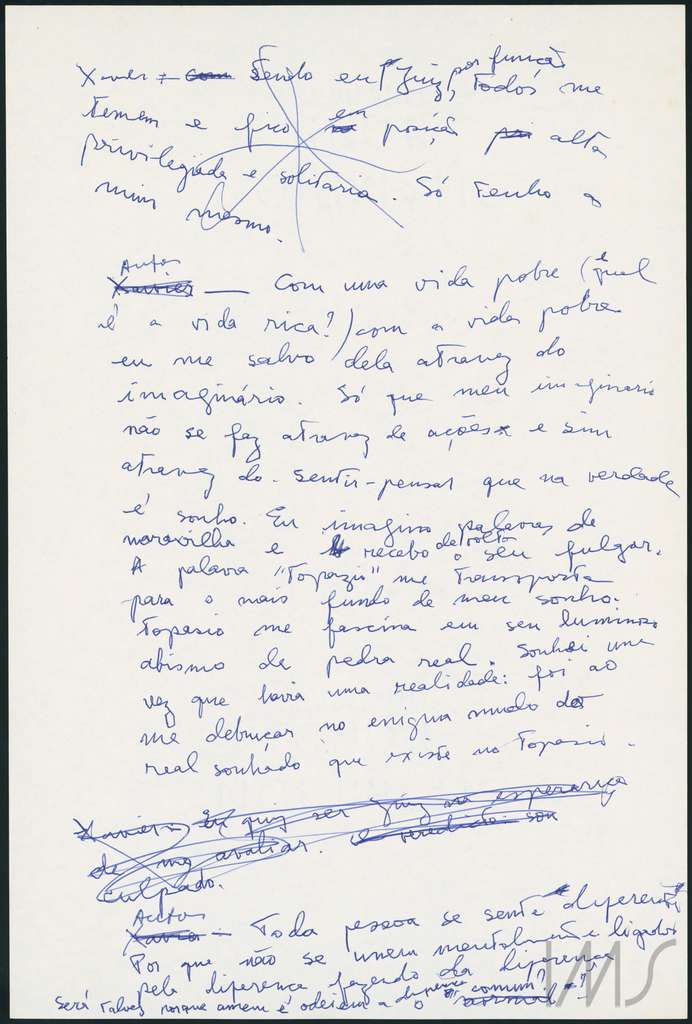 Xavier – Com Sendo eu Juiz, por função
todos me
temem e fico em posição alta
privilegiada e solitaria. Só tenho a
mim mesmo.
Autor
Xavier — Com uma vida pobre (e qual
é a vida rica?) com a vida pobre
eu me salvo dela atravez do
imaginário. Só que meu imaginario
não se faz atravez de ações e sim
atravez do sentir-pensar que na verdade
é sonho. Eu imagino palavras de
maravilha e recebo de volta o seu fulgor.
A palavra "Topazio" me transporta
para o mais fundo de meu sonho.
Topasio me fascina em seu luminoso
abismo de pedra real. Sonhei uma
vez que havia uma realidade: foi ao
me debruçar no enigma mudo do
real sonhado que existe no Topasio.
Xavier – Eu quiz ser Juiz na esperança
de me avaliar. e veredicto: sou
culpado.
Xavier – Toda pessoa se sente diferente
Por que não se unem mentalmente ligados
pela diferença fazendo da diferença
o comum?
normal
Será talvez porque amem e odeiem a diferença?
IMS